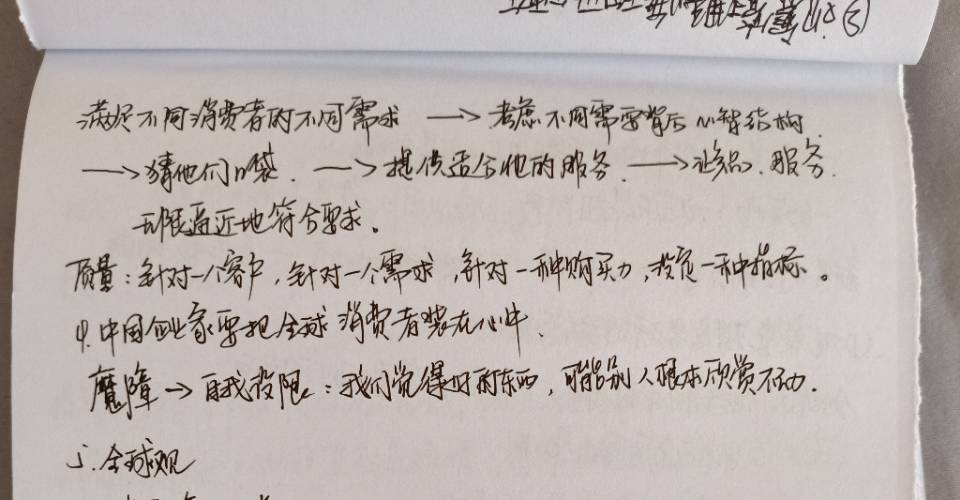 满足不同消费者的不同需求 → 考虑不同需要背后心智结构
→ 猜他们口袋. → 提供适合他的服务. → 让知识.服务.
无限逼近地符合要求。
质量:针对一个客户,针对一个需求,针对一种购买力,设定一种指标。
4.中国企业家要把全球消费者装在心中.
魔障 → 自我设限:我们觉得好的东西,可能别人根本欣赏不动.
5.全球观